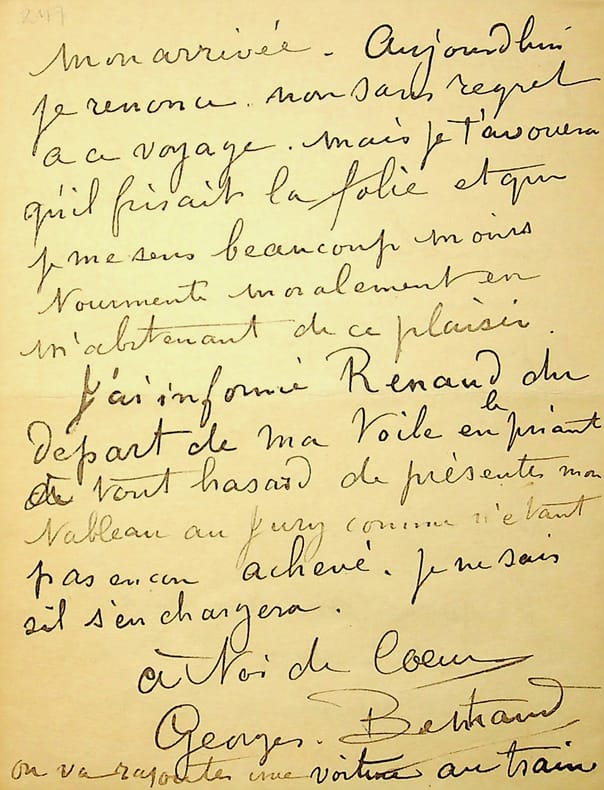 247
mon arrivée. Aujourd'hui
je renonce non sans regret
a ce voyage. mais je t'avouerai
qu'il frisait la folie et que
je me sens beaucoup moins
tourmenté moralement en
m'abstenant de ce plaisir.
J'ai informé Renaud du
départ de ma toile en le priant
à tout hasard de présenter mon
tableau au Jury comme n'étant
pas encore achevé. je ne sais
s'il s'en chargera.
à toi de Coeur
Georges. Bertrand
on va rajouter une voiture au train